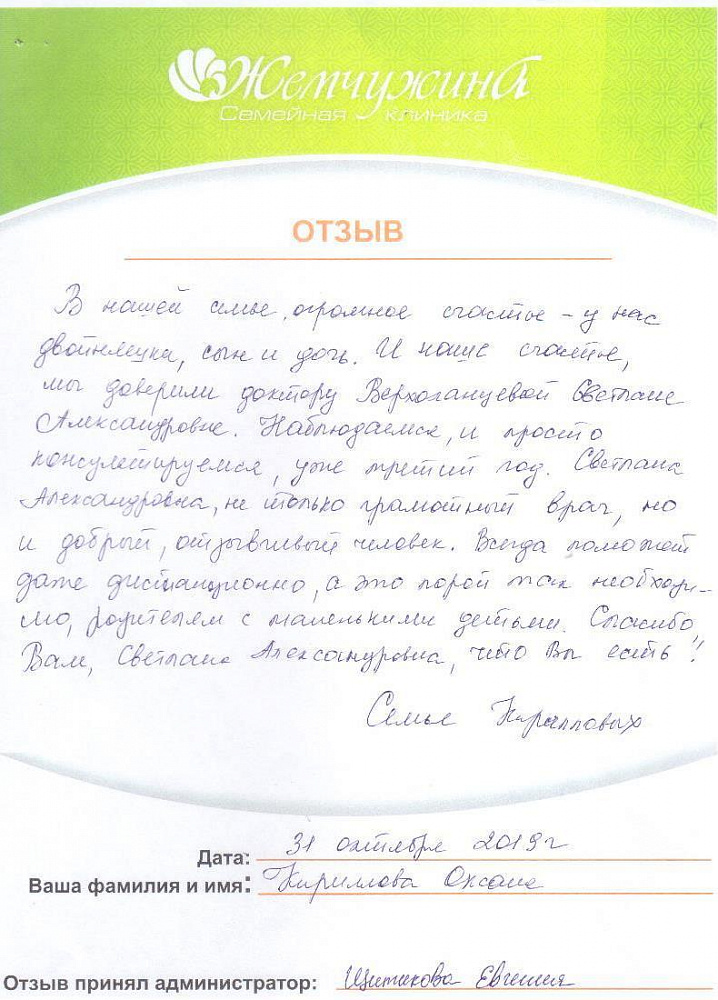 Жемчужина
Семейная клиника
ОТЗЫВ
В нашей семье, огромное счастье – у нас
двойняшка, сын и дочь. И наше счастье,
мы доверили доктору Верхоланцевой Светлане
Александровне. Наблюдаемся, и просто
консультируемся, уже третий год. Светлана
Александровна, не только грамотный врач, но
и добрый, отзывчивый человек. Всегда поможет
даже дистанционно, а это порой так необходи-
мо, родителям с маленькими детьми. Спасибо
Вам, Светлана Александровна, что Вы есть!!
Семья Кирилловых
Дата: 31 октября 2019г
Ваша фамилия и имя: Кириллова Оксана
Отзыв принял администратор: Евгения